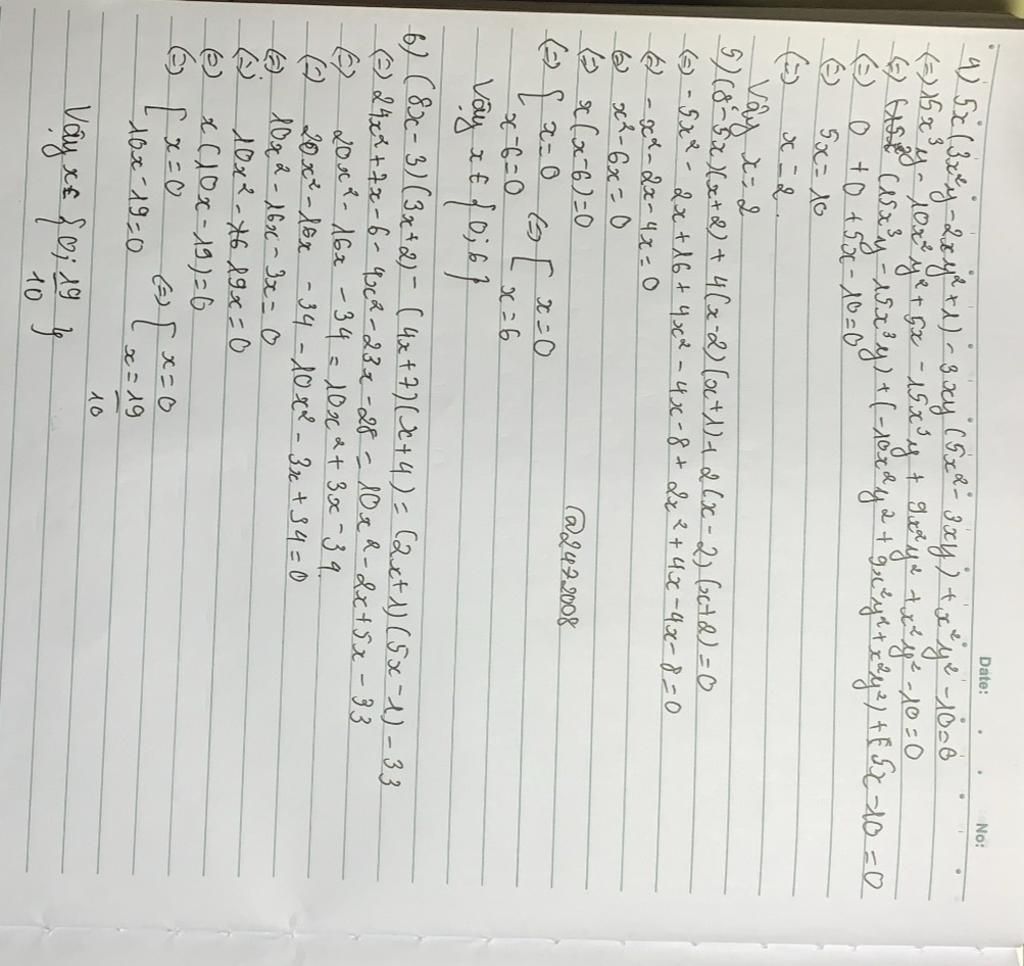 Date: No:
4) 5x(3x²y - 2xy² + 1) - 3xy(5x² - 3xy) + x²y² - 10 = 0
(=) 15x³y - 10x²y² + 5x - 15x³y + 9x²y² + x²y² - 10 = 0
(=) (15x³y - 15x³y) + (-10x²y² + 9x²y² + x²y²) + (5x - 10 = 0
(=) 0 + 0 + 5x - 10 = 0
(=) 5x = 10
(=) x = 2.
Vậy x = 2
5) (8 - 5x)(x + 2) + 4(x - 2)(x + 1) + 2(x - 2)(x + 2) = 0
(=) - 5x² - 2x + 16 + 4x² - 4x - 8 + 2x² + 4x - 4x - 8 = 0
(=) - x² - 2x - 4x = 0
(=) x² - 6x = 0
(=) x(x - 6) = 0
(=) [ x = 0 (=) [ x = 0
x - 6 = 0 x = 6
Vậy x ∈ {0; 6}
@2472008
6) (8x - 3)(3x + 2) - (4x + 7)(x + 4) = (2x + 1)(5x - 1) - 33
(=) 24x² + 7x - 6 - 4x² - 23x - 28 = 10x² - 2x + 5x - 33
(=) 20x² - 16x - 34 = 10x² + 3x - 34.
(=) 20x² - 16x - 34 - 10x² - 3x + 34 = 0
(=) 10x² - 16x - 3x = 0
(=) 10x² - 19x = 0
(=) x(10x - 19) = 0
(=) [ x = 0 (=) [ x = 0
10x - 19 = 0 x = 19/10
Vậy x ∈ {0; 19/10}